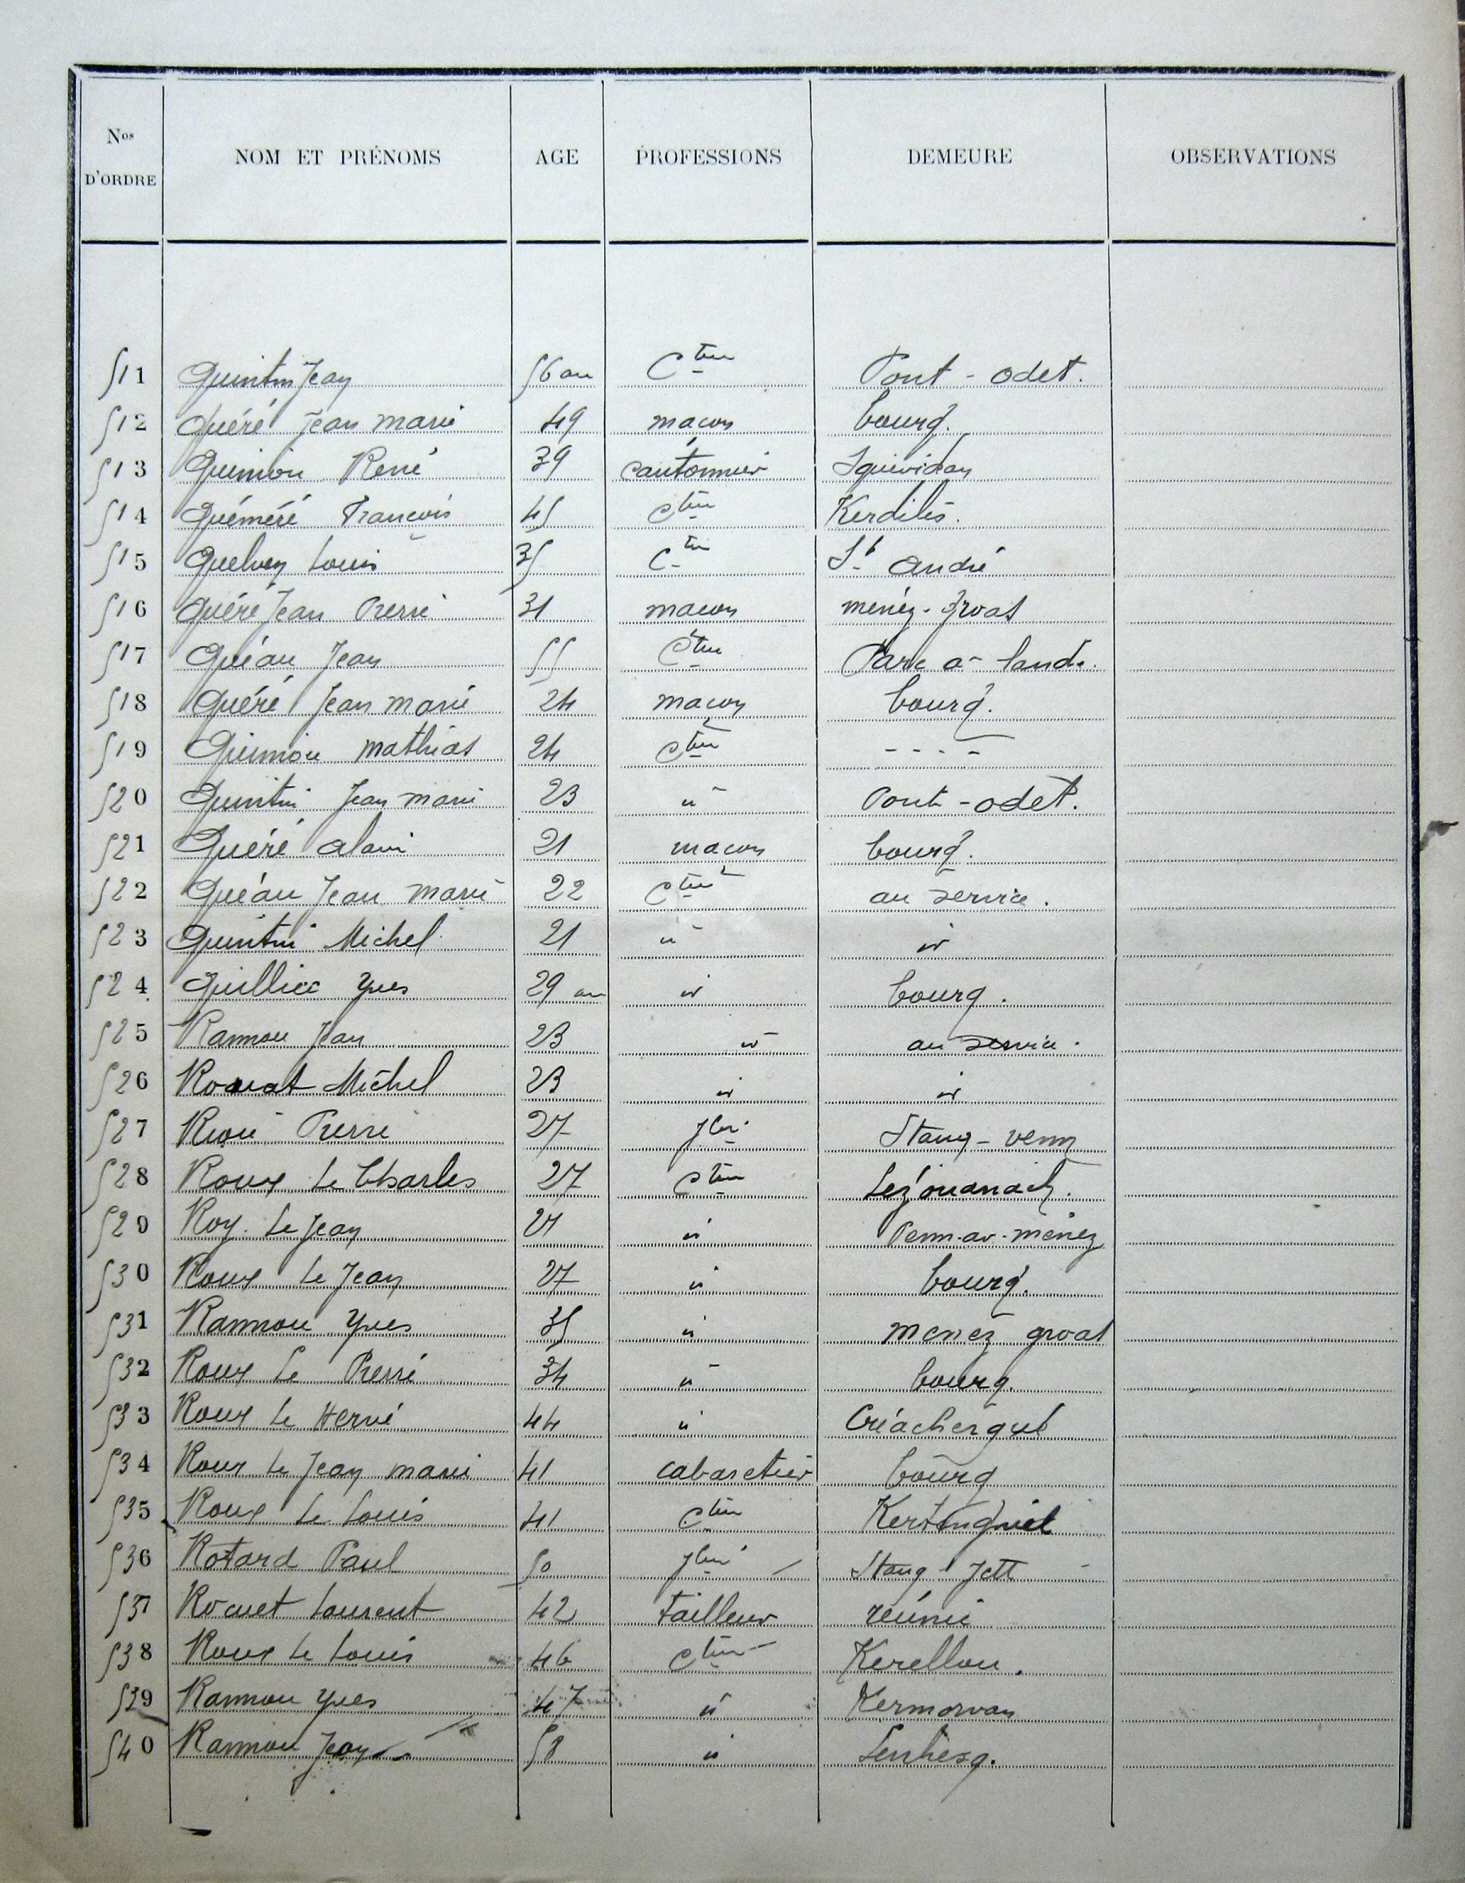 Nos D'ORDRE NOM ET PRÉNOMS AGE PROFESSIONS DEMEURE OBSERVATIONS
511 Quintin Jean 56 an Cteur Pont-odet.
512 Quéré Jean marie 49 maçon bourg.
513 Quiniou René 39 cantonnier Squividan
514 Quéméré François 45 cteur Kerdilès.
515 Quelven Louis 35 Cteur St André
516 Quéré Jean Pierre 31 maçon menez-groas
517 Quéau Jean 55 Cteur Parc a- lande.
518 Quéré Jean marie 24 maçon bourg.
519 Quiniou mathias 24 cteur - - - -
520 Quintin Jean marie 23 " Pont-odet.
521 Quéré alain 21 maçon bourg.
522 Quéau Jean marie 22 cteur au service.
523 Quintin Michel 21 " "
524 Quilliec Yves 29 an " bourg.
525 Rannou Jean 23 " au service.
526 Michel 23 " "
527 Riou Pierre 27 jlier Stang-venn
528 Roux Le Charles 27 cteur Lezouanach.
529 Roy Le Jean 27 " Penn-ar-menez
530 Roux Le Jean 27 " bourg.
531 Rannou Yves 35 " menez groas
532 Roux Le Pierre 34 " bourg.
533 Roux Le Hervé 44 " Créac'hergul
534 Roux Le Jean marie 41 cabaretier bourg
535 Roux Le Louis 41 cteur
536 Rotard Paul 50 jlier Stang
537 Laurent 42 tailleur réunic
538 Roux Le Louis 46 cteur Kerellou.
539 Rannou Yves 47 " Kermorvan
540 Rannou Jean 58 " Lenhesq.